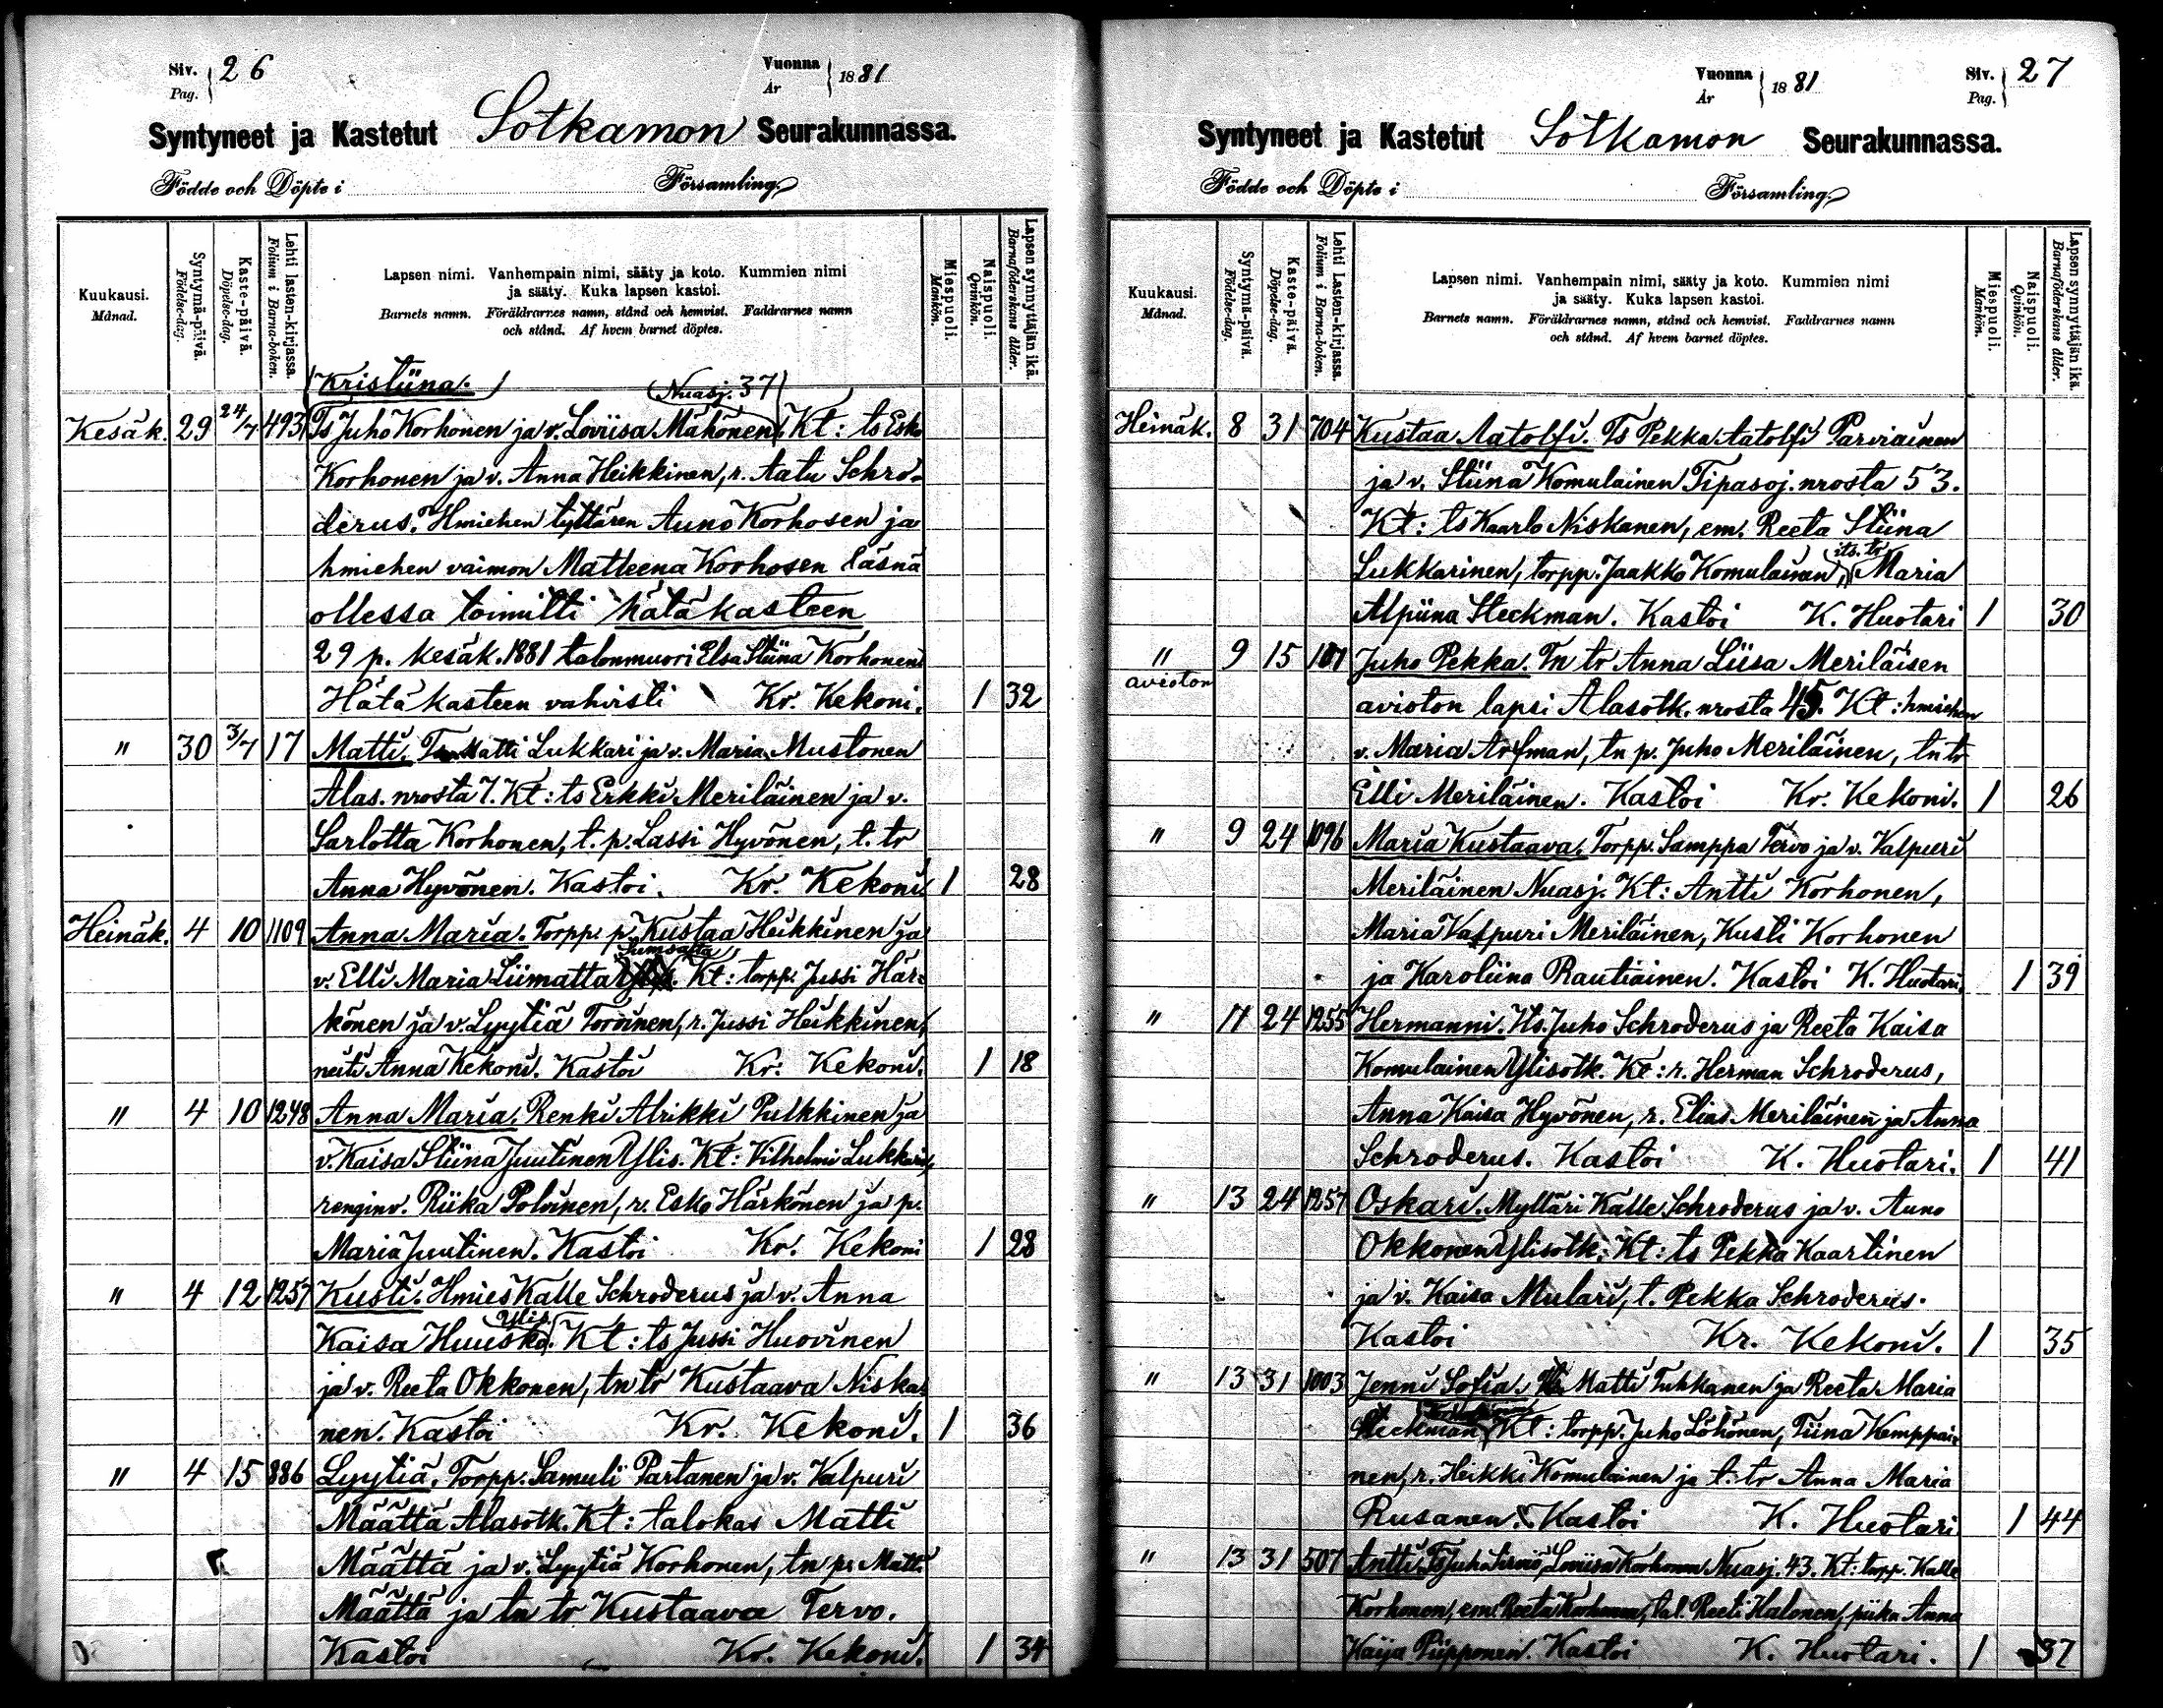 Siv. 26
Pag.
Vuonna 1881
År
Syntyneet ja Kastetut Sotkamon Seurakunnassa.
Födde och Döpte i Församling.
Kuukausi.
Månad.
Syntymä-päivä.
Födelse-dag.
Kaste-päivä.
Döpelse-dag.
Lehti lasten-kirjassa.
Folium i Barna-boken.
Lapsen nimi. Vanhempain nimi, sääty ja koto. Kummien nimi
ja sääty. Kuka lapsen kastoi.
Barnets namn. Föräldrarnes namn, stånd och hemvist. Faddrarnes namn
och stånd. Af hvem barnet döptes.
Miespuoli.
Mankön.
Naispuoli.
Qvinkön.
Lapsen synnyttäjän ikä.
Barnaföderskans ålder.
Kristiina. Nuasj. 37
Kesäk. 29 24/7 493 Ts Juho Korhonen ja v. Loviisa Mähönen Kt: ts Esko
Korhonen ja v. Anna Heikkinen, r. Aatu Schro-
derus. Hmiehen tyttären Auno Korhosen ja
hmiehen vaimon Matleena Korhosen läsnä
ollessa toimitti hätäkasteen
29 p. kesäk. 1881 talonmuori Elsa Stiina Korhonen.
Hätäkasteen vahvisti Kr. Kekoni. 1 32
" 30 3/7 17 Matti. Matti Lukkari ja v. Maria Mustonen
Alas. nrosta 7. Kt: ts Erkki Meriläinen ja v.
Sarlotta Korhonen, t. p. Lassi Hyvönen, t. tr
Anna Hyvönen. Kastoi Kr. Kekoni 1 28
Heinäk. 4 10 1109 Anna Maria. Torpp. p. Kustaa Heikkinen ja
v. Elli Maria Liimatta Kt: torpp. Jussi Här-
könen ja v. Lyytiä Torvinen, r. Jussi Heikkinen,
neiti Anna Kekoni. Kastoi Kr. Kekoni. 1 18
" 4 10 1248 Anna Maria. Renki Alrikki Pulkkinen ja
v. Kaisa Stiina Juutinen Ylis. Kt: Vilhelmi Lukkari,
renginv. Riika Polvinen, r. Esko Härkönen ja p.
Maria Juutinen. Kastoi Kr. Kekoni 1 28
" 4 12 1257 Kusti. Hmies Kalle Schroderus ja v. Anna
Ylis.
Kaisa Huusko. Kt: ts Jussi Huovinen
ja v. Reeta Okkonen, tn tr Kustaava Niska-
nen. Kastoi Kr. Kekoni. 1 36
" 4 15 886 Lyytiä. Torpp. Samuli Partanen ja v. Valpuri
Määttä Alasotk. Kt: talokas Matti
Määttä ja v. Lyytiä Korhonen, tn p. Matti
Määttä ja tn tr Kustaava Tervo.
Kastoi Kr. Kekoni. 1 34
Vuonna 1881
År
Siv. 27
Pag.
Syntyneet ja Kastetut Sotkamon Seurakunnassa.
Födde och Döpte i Församling.
Kuukausi.
Månad.
Syntymä-päivä.
Födelse-dag.
Kaste-päivä.
Döpelse-dag.
Lehti Lasten-kirjassa.
Folium i Barna-boken.
Lapsen nimi. Vanhempain nimi, sääty ja koto. Kummien nimi
ja sääty. Kuka lapsen kastoi.
Barnets namn. Föräldrarnes namn, stånd och hemvist. Faddrarnes namn
och stånd. Af hvem barnet döptes.
Miespuoli.
Mankön.
Naispuoli.
Qvinkön.
Lapsen synnyttäjän ikä.
Barnaföderskans ålder.
Heinäk. 8 31 704 Kustaa Aatolfi. Ts Pekka Aatolfi Parviainen
ja v. Stiina Komulainen Tipasoj. nrosta 53.
Kt: ts Kaarlo Niskanen, em. Reeta Stiina
its. tr
Lukkarinen, torpp. Jaakko Komulainen, Maria
Alpiina Steckman. Kastoi K. Huotari 1 30
" 9 15 Juho Pekka. Tn tr Anna Liisa Meriläisen
avioton
avioton lapsi Alasotk. nrosta 45. Kt: hmiehen
v. Maria Arfman, tn p. Juho Meriläinen, tn tr
Elli Meriläinen. Kastoi Kr. Kekoni. 1 26
" 9 24 1096 Maria Kustaava. Torpp. Samppa Tervo ja v. Valpuri
Meriläinen Nuasj. Kt: Antti Korhonen,
Maria Valpuri Meriläinen, Kusti Korhonen
ja Karoliina Rautiainen. Kastoi K. Huotari. 1 39
" 11 24 1255 Hermanni. Its. Juho Schroderus ja Reeta Kaisa
Komulainen Ylisotk. Kt: r. Herman Schroderus,
Anna Kaisa Hyvönen, r. Elias Meriläinen ja Anna
Schroderus. Kastoi K. Huotari. 1 41
" 13 24 1257 Oskari. Mylläri Kalle Schroderus ja v. Auno
Okkonen Ylisotk. Kt: ts Pekka Kaartinen
ja v. Kaisa Mulari, t. Pekka Schroderus.
Kastoi Kr. Kekoni. 1 35
" 13 31 1003 Jenni Sofia. Matti Tuhkanen ja Reeta Maria
Steckman Kt: torpp. Juho Löhönen, Tiina Kemppai-
nen, r. Heikki Komulainen ja t. tr Anna Maria
Rusanen. Kastoi K. Huotari 1 44
" 13 31 507 Antti. Ts Juho Sirniö, Loviisa Korhonen Nuasj. 43. Kt: torpp. Kalle
Korhonen, em. Reeta Korhonen, tal. Reeti Halonen, piika Anna
Kaija Piipponen. Kastoi K. Huotari. 1 37